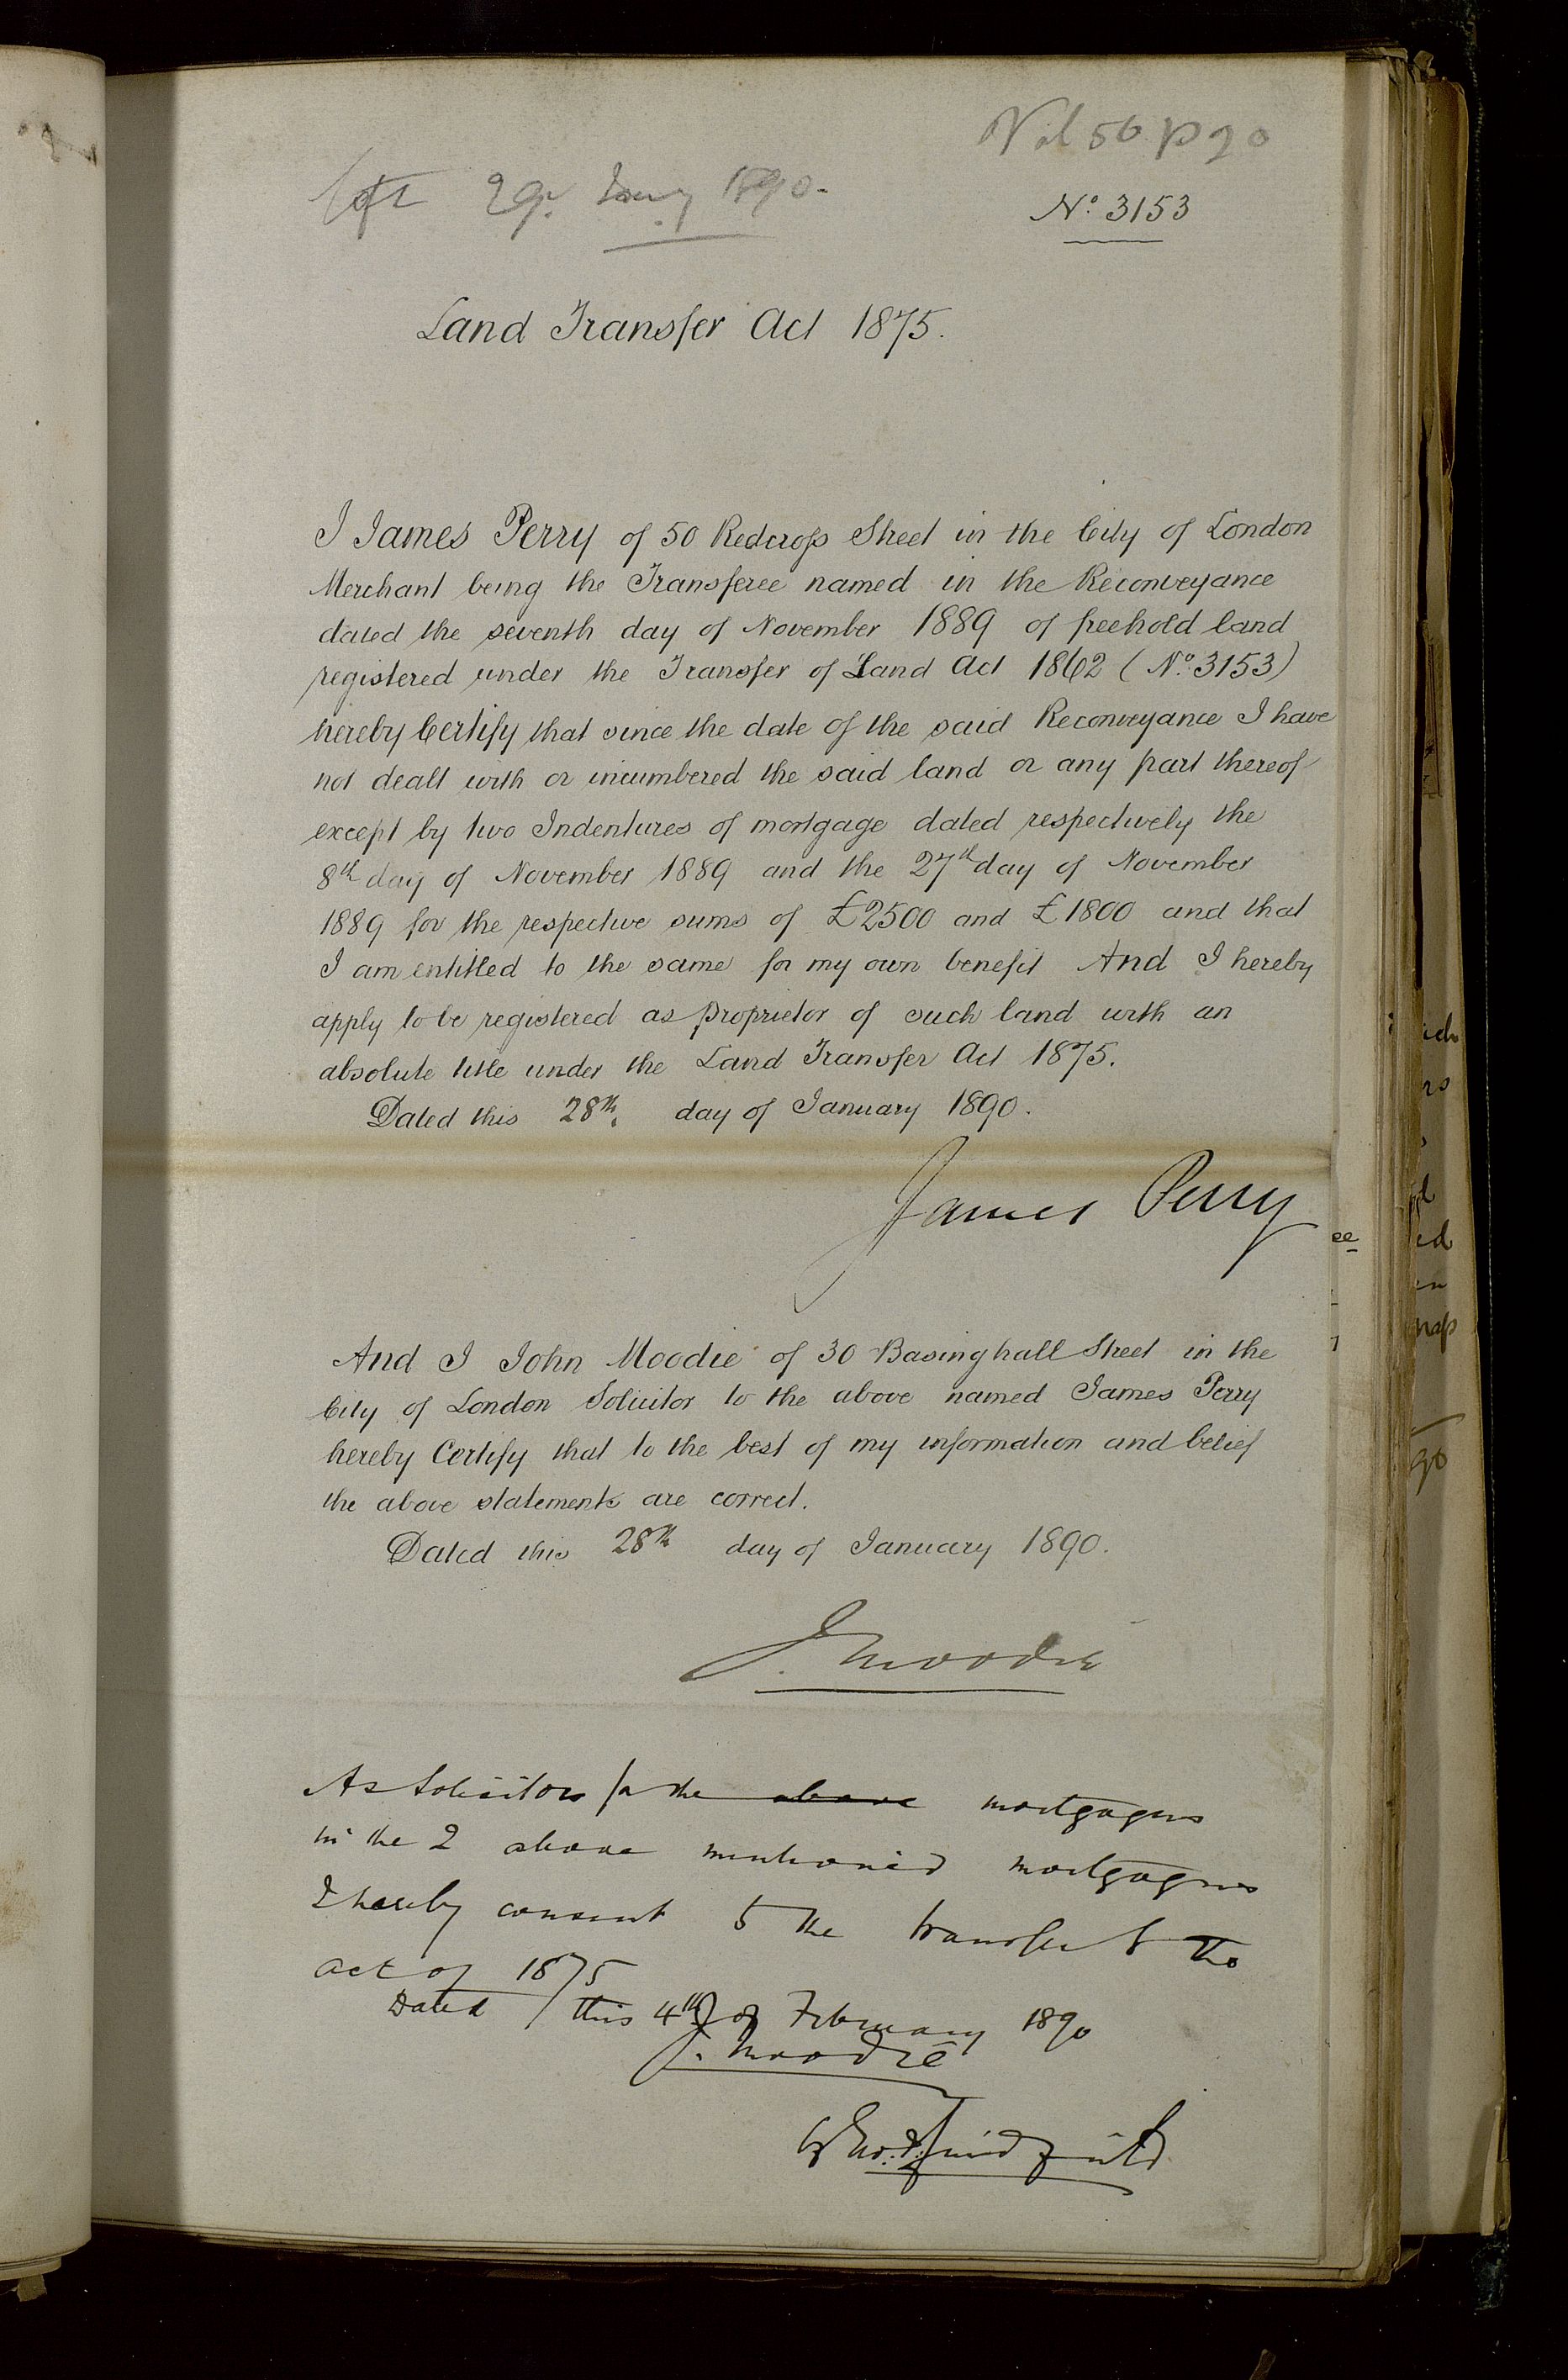 Vol 56 p 90
29. Jany 1890.
No. 3153
Land Transfer Act 1875.
I James Perry of 50 Redcross Street in the City of London
Merchant being the Transferee named in the Reconveyance
dated the seventh day of November 1889 of freehold land
registered under the Transfer of Land Act 1862 (No. 3153)
hereby Certify that since the date of the said Reconveyance I have
not dealt with or incumbered the said land or any part thereof
except by two Indentures of mortgage dated respectively the
8th day of November 1889 and the 27th day of November
1889 for the respective sums of £2500 and £1800 and that
I am entitled to the same for my own benefit And I hereby
apply to be registered as proprietor of such land with an
absolute title under the Land Transfer Act 1875.
Dated this 28th. day of January 1890.
James Perry
And I John Moodie of 30 Basinghall Street in the
City of London Solicitor to the above named James Perry
hereby Certify that to the best of my information and belief
the above statements are correct.
Dated this 28th day of January 1890.
J. Moodie
As Solicitors for the above mortgagees
in the 2 above mentioned mortgages
I hereby consent to the transfer to the
act of 1875
Dated this 4th of February 1890
J. Moodie